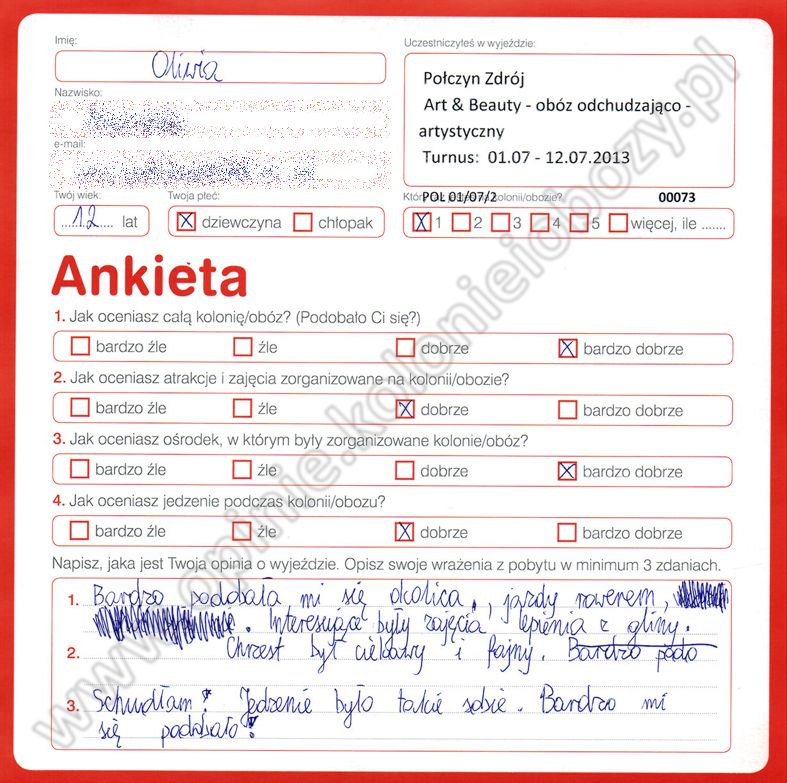 Imię:
Oliwia
Nazwisko:
e-mail:
Twój wiek:
12 lat
Twoja płeć:
X dziewczyna chłopak
Uczestniczyłeś w wyjeździe:
Połczyn Zdrój
Art & Beauty - obóz odchudzająco -
artystyczny
Turnus: 01.07 - 12.07.2013
POL 01/07/2 kolonii/obozie? 00073
X 1 2 3 4 5 więcej, ile .......
Ankieta
1. Jak oceniasz całą kolonię/obóz? (Podobało Ci się?)
bardzo źle źle dobrze X bardzo dobrze
2. Jak oceniasz atrakcje i zajęcia zorganizowane na kolonii/obozie?
bardzo źle źle X dobrze bardzo dobrze
3. Jak oceniasz ośrodek, w którym były zorganizowane kolonie/obóz?
bardzo źle źle dobrze X bardzo dobrze
4. Jak oceniasz jedzenie podczas kolonii/obozu?
bardzo źle źle X dobrze bardzo dobrze
Napisz, jaka jest Twoja opinia o wyjeździe. Opisz swoje wrażenia z pobytu w minimum 3 zdaniach.
1. Bardzo podobała mi się okolica, jazdy rowerem,
. Interesujące były zajęcia lepienia z gliny.
2. Chrzest był ciekawy i fajny. Bardzo podo
3. Schudłam! Jedzenie było takie sobie. Bardzo mi
się podobało!
www.opinie.kolonieiobozy.pl